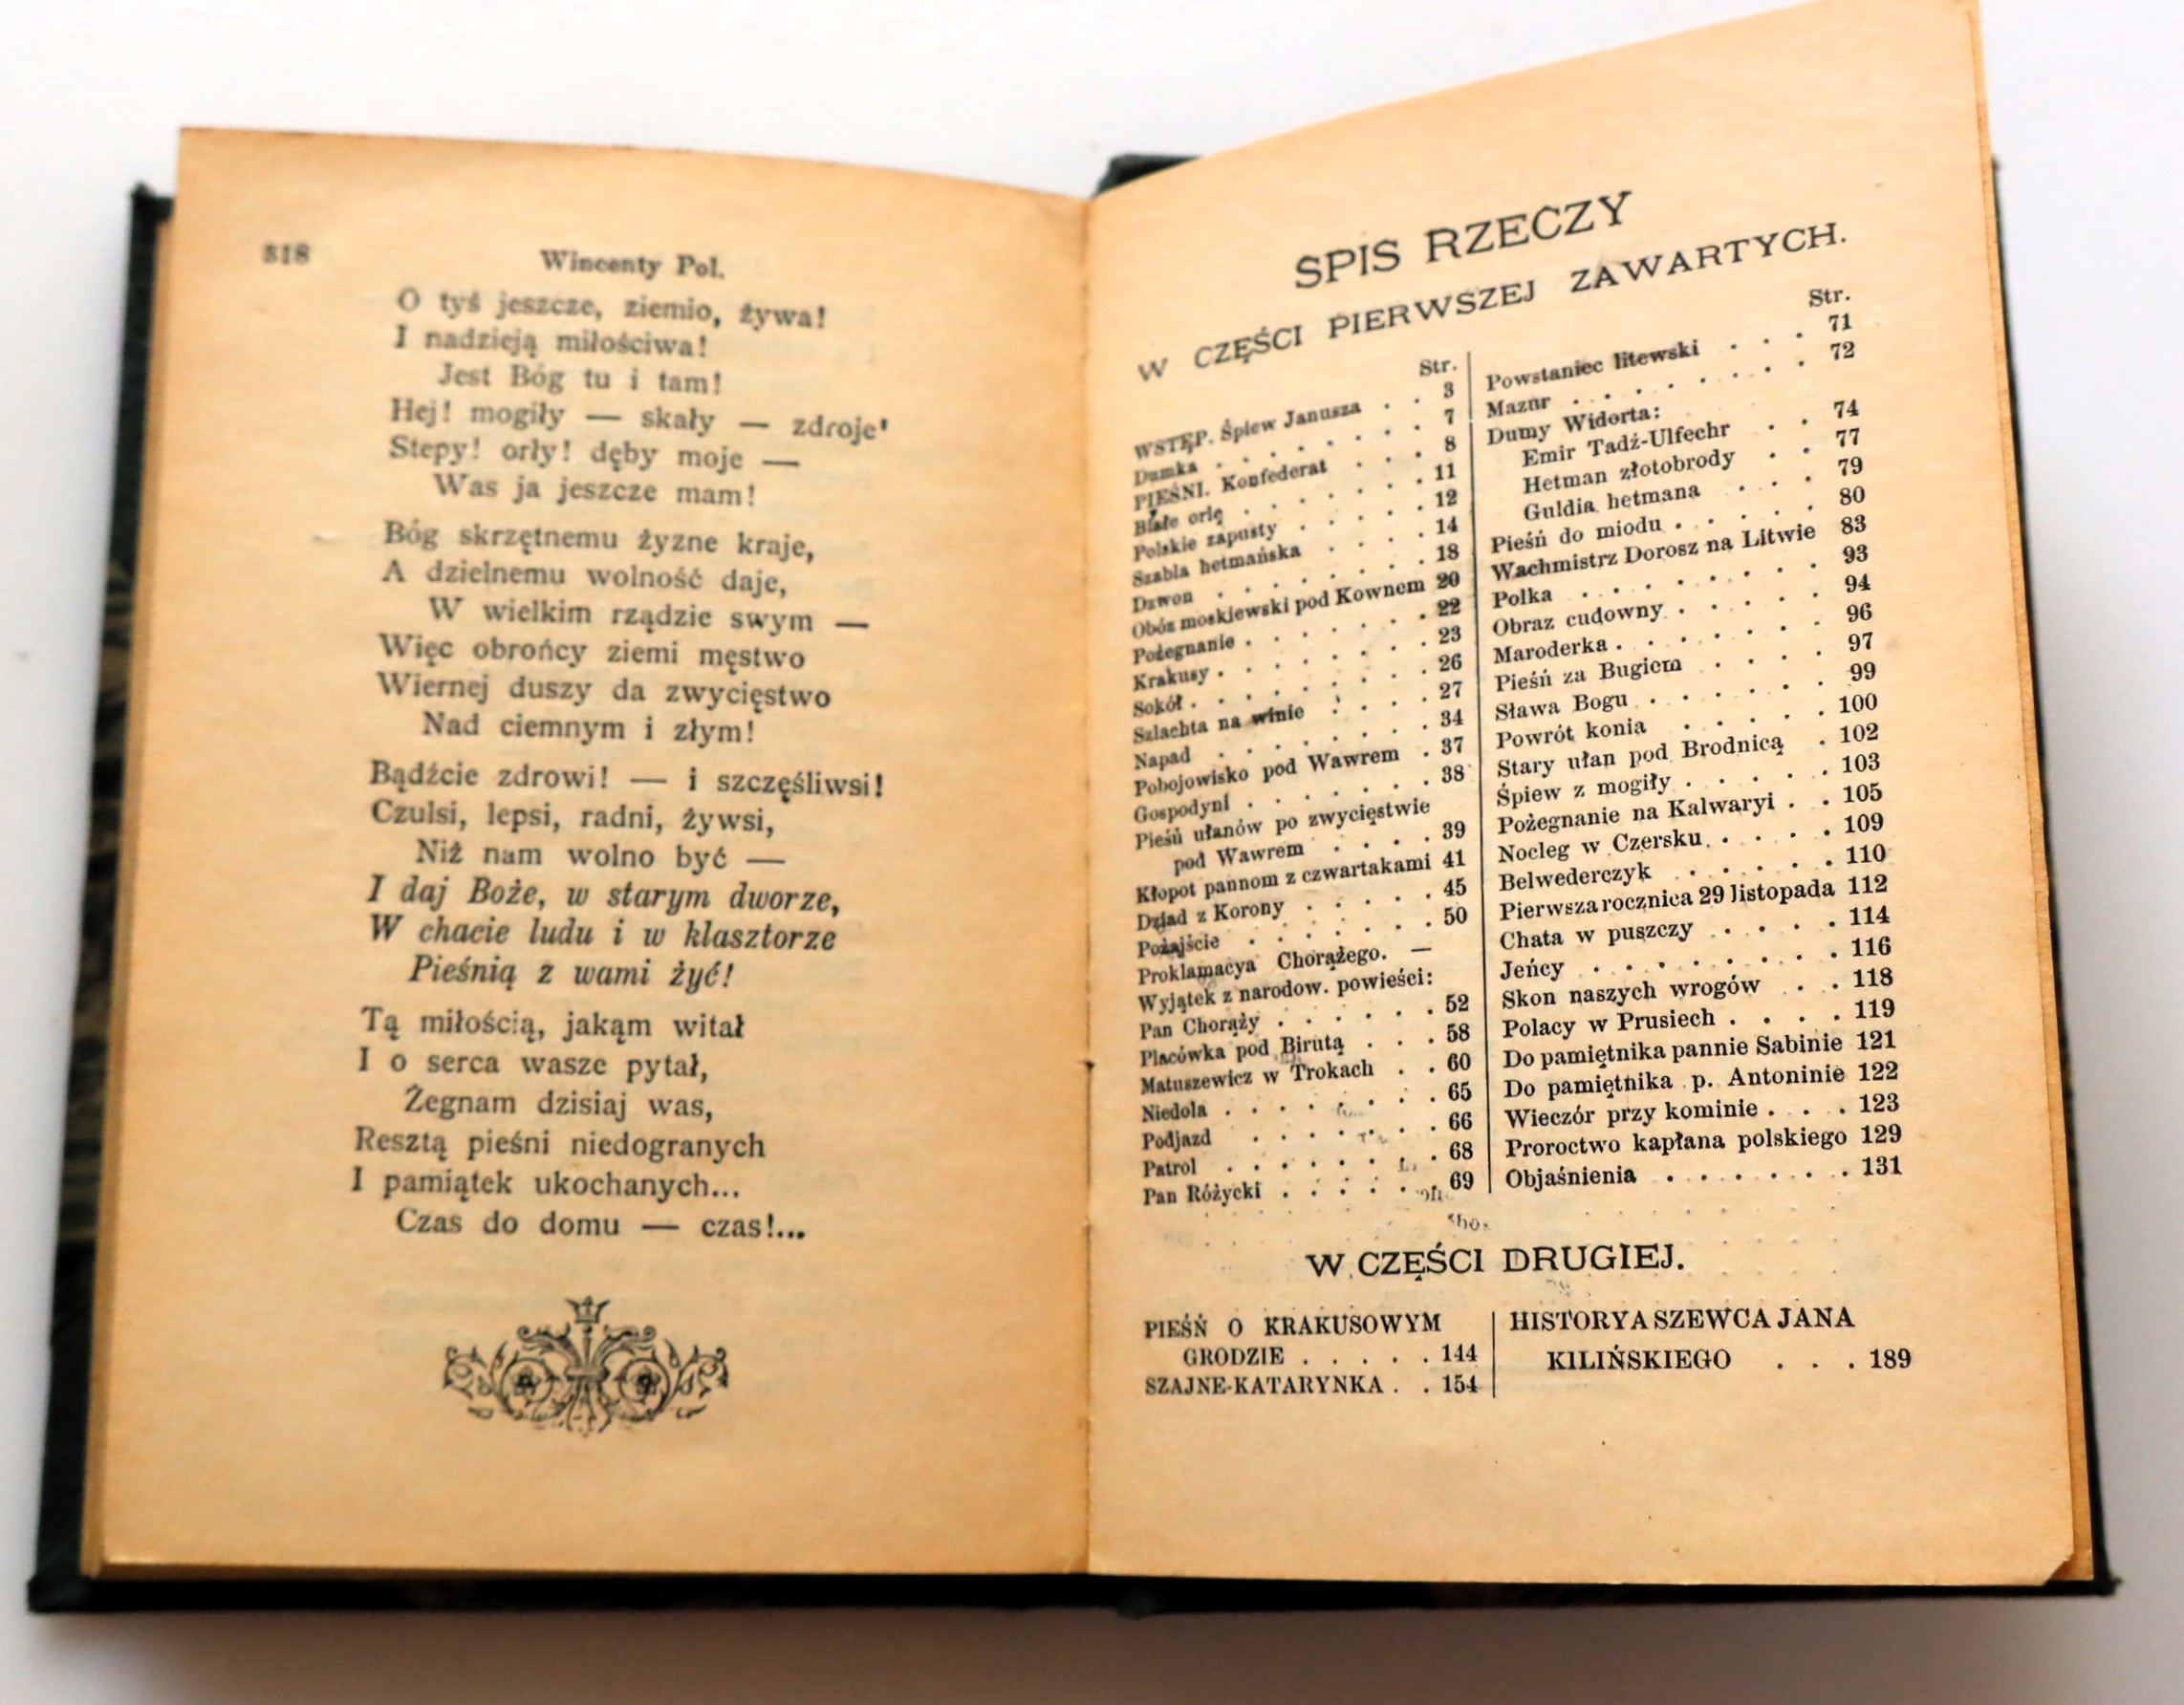 318
Wincenty Pol.
O tyś jeszcze, ziemio, żywa!
I nadzieją miłościwa!
Jest Bóg tu i tam!
Hej! mogiły — skały — zdroje!
Stepy! orły! dęby moje —
Was ja jeszcze mam!
Bóg skrzętnemu żyzne kraje,
A dzielnemu wolność daje,
W wielkim rządzie swym —
Więc obrońcy ziemi męstwo
Wiernej duszy da zwycięstwo
Nad ciemnym i złym!
Bądźcie zdrowi! — i szczęśliwsi!
Czulsi, lepsi, radni, żywsi,
Niż nam wolno być —
I daj Boże, w starym dworze,
W chacie ludu i w klasztorze
Pieśnią z wami żyć!
Tą miłością, jakąm witał
I o serca wasze pytał,
Żegnam dzisiaj was,
Resztą pieśni niedogranych
I pamiątek ukochanych...
Czas do domu — czas!...
SPIS RZECZY
W CZĘŚCI PIERWSZEJ ZAWARTYCH.
Str.
WSTĘP. Śpiew Janusza . . 3
Dumka . . . . . . . 7
PIEŚNI. Konfederat . . . 8
Białe orlę . . . . . . 11
Polskie zapusty . . . . . 12
Szabla hetmańska . . . . 14
Dzwon . . . . . . . 18
Obóz moskiewski pod Kownem 20
Pożegnanie . . . . . . 22
Krakusy . . . . . . . 23
Sokół . . . . . . . . 26
Szlachta na winie . . . . 27
Napad . . . . . . . 34
Pobojowisko pod Wawrem . 37
Gospodyni . . . . . . 38
Pieśń ułanów po zwycięstwie
pod Wawrem . . . . 39
Kłopot pannom z czwartakami 41
Dziad z Korony . . . . . 45
Pożajście . . . . . . 50
Proklamacya Chorążego. —
Wyjątek z narodow. powieści:
Pan Chorąży . . . . . . 52
Placówka pod Birutą . . . 58
Matuszewicz w Trokach . . 60
Niedola . . . . . . . 65
Podjazd . . . . . . 66
Patrol . . . . . . . 68
Pan Różycki . . . . . 69
Str.
Powstaniec litewski . . . 71
Mazur . . . . . . . 72
Dumy Widorta:
Emir Tadź-Ulfechr . . 74
Hetman złotobrody . . 77
Guldia hetmana . . . 79
Pieśń do miodu . . . . . 80
Wachmistrz Dorosz na Litwie 83
Polka . . . . . . . 93
Obraz cudowny . . . . . 94
Maroderka . . . . . . 96
Pieśń za Bugiem . . . . 97
Sława Bogu . . . . . . 99
Powrót konia . . . . . 100
Stary ułan pod Brodnicą . 102
Śpiew z mogiły . . . . . 103
Pożegnanie na Kalwaryi . . 105
Nocleg w Czersku . . . . 109
Belwederczyk . . . . . . 110
Pierwsza rocznica 29 listopada 112
Chata w puszczy . . . . 114
Jeńcy . . . . . . . . 116
Skon naszych wrogów . . 118
Polacy w Prusiech . . . . 119
Do pamiętnika pannie Sabinie 121
Do pamiętnika p. Antoninie 122
Wieczór przy kominie . . . 123
Proroctwo kapłana polskiego 129
Objaśnienia . . . . . . 131
W CZĘŚCI DRUGIEJ.
PIEŚŃ O KRAKUSOWYM
GRODZIE . . . . . 144
SZAJNE-KATARYNKA . . 154
HISTORYA SZEWCA JANA
KILIŃSKIEGO . . . 189